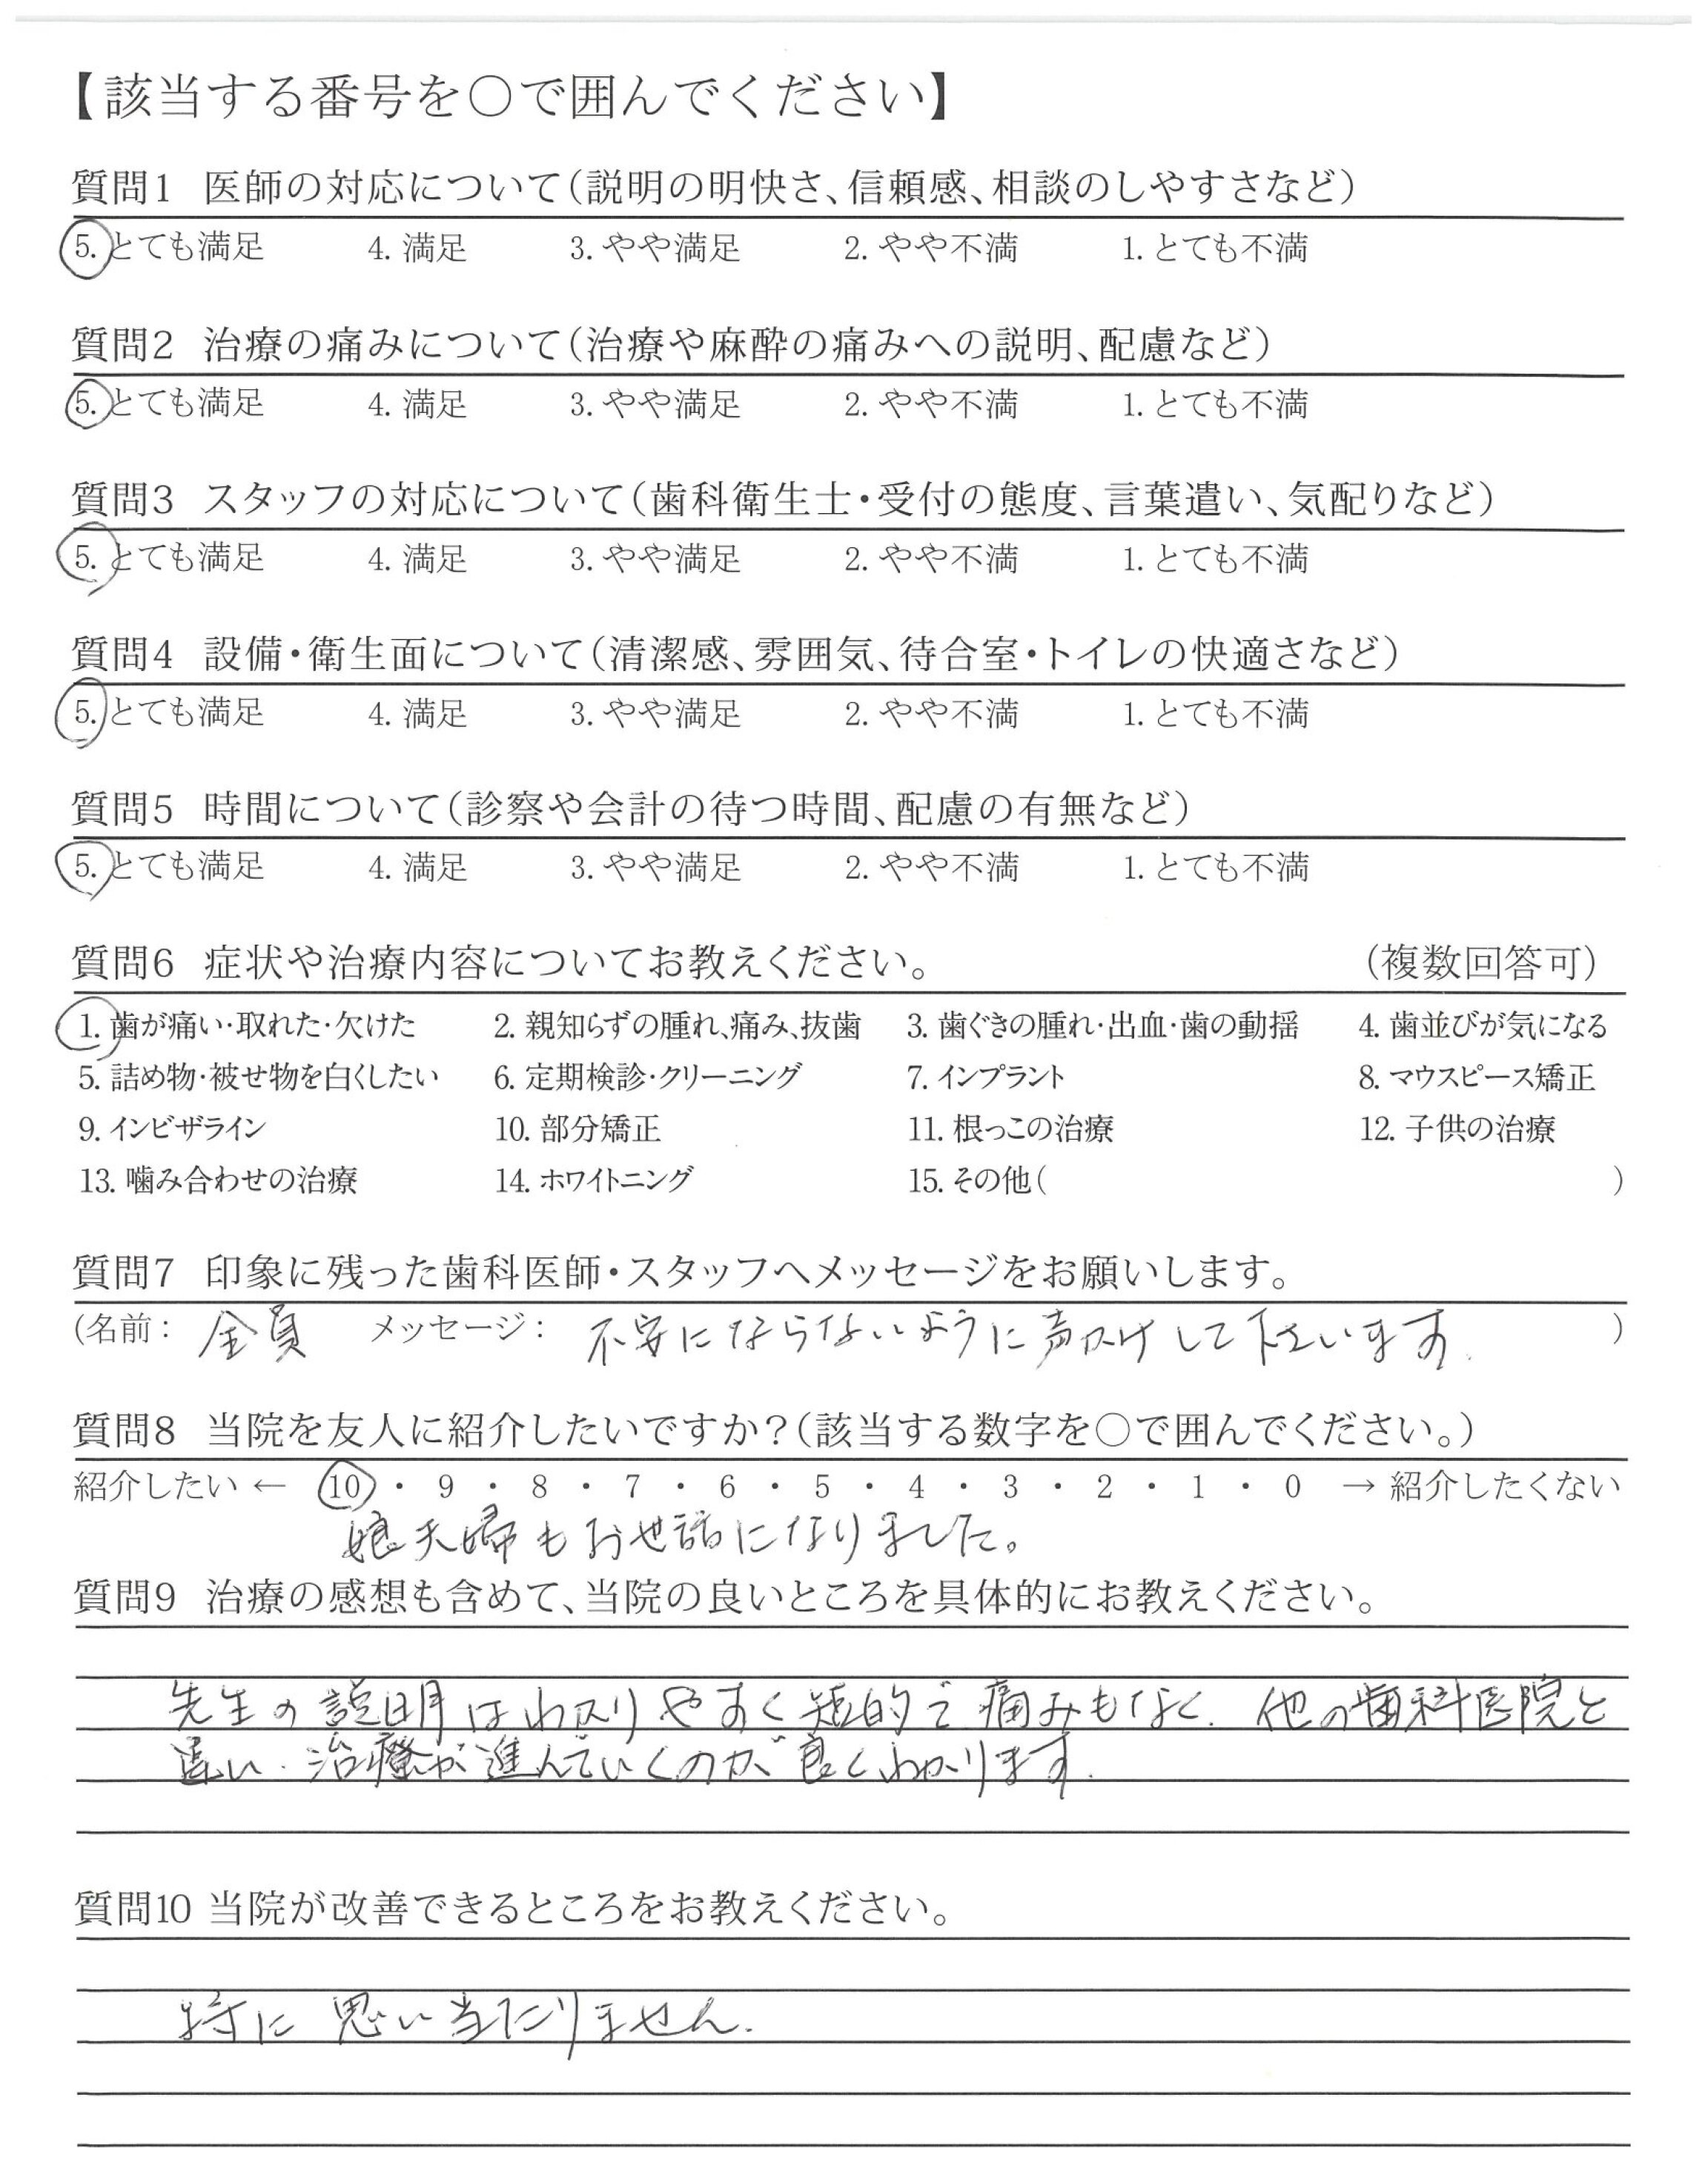 【該当する番号を○で囲んでください】
質問1 医師の対応について(説明の明快さ、信頼感、相談のしやすさなど)
5. とても満足 4. 満足 3. やや満足 2. やや不満 1. とても不満
質問2 治療の痛みについて(治療や麻酔の痛みへの説明、配慮など)
5. とても満足 4. 満足 3. やや満足 2. やや不満 1. とても不満
質問3 スタッフの対応について(歯科衛生士・受付の態度、言葉遣い、気配りなど)
5. とても満足 4. 満足 3. やや満足 2. やや不満 1. とても不満
質問4 設備・衛生面について(清潔感、雰囲気、待合室・トイレの快適さなど)
5. とても満足 4. 満足 3. やや満足 2. やや不満 1. とても不満
質問5 時間について(診察や会計の待つ時間、配慮の有無など)
5. とても満足 4. 満足 3. やや満足 2. やや不満 1. とても不満
質問6 症状や治療内容についてお教えください。 (複数回答可)
1. 歯が痛い・取れた・欠けた 2. 親知らずの腫れ、痛み、抜歯 3. 歯ぐきの腫れ・出血・歯の動揺 4. 歯並びが気になる
5. 詰め物・被せ物を白くしたい 6. 定期検診・クリーニング 7. インプラント 8. マウスピース矯正
9. インビザライン 10. 部分矯正 11. 根っこの治療 12. 子供の治療
13. 噛み合わせの治療 14. ホワイトニング 15. その他( )
質問7 印象に残った歯科医師・スタッフへメッセージをお願いします。
(名前: 全員 メッセージ: 不安にならないように声かけして下さいます. )
質問8 当院を友人に紹介したいですか?(該当する数字を○で囲んでください。)
紹介したい ← 10 ・ 9 ・ 8 ・ 7 ・ 6 ・ 5 ・ 4 ・ 3 ・ 2 ・ 1 ・ 0 → 紹介したくない
娘夫婦もお世話になりました。
質問9 治療の感想も含めて、当院の良いところを具体的にお教えください。
先生の説明はわかりやすく短的で痛みもなく. 他の歯科医院と
違い. 治療が進んでいくのが良くわかります.
質問10 当院が改善できるところをお教えください。
特に思い当たりません.